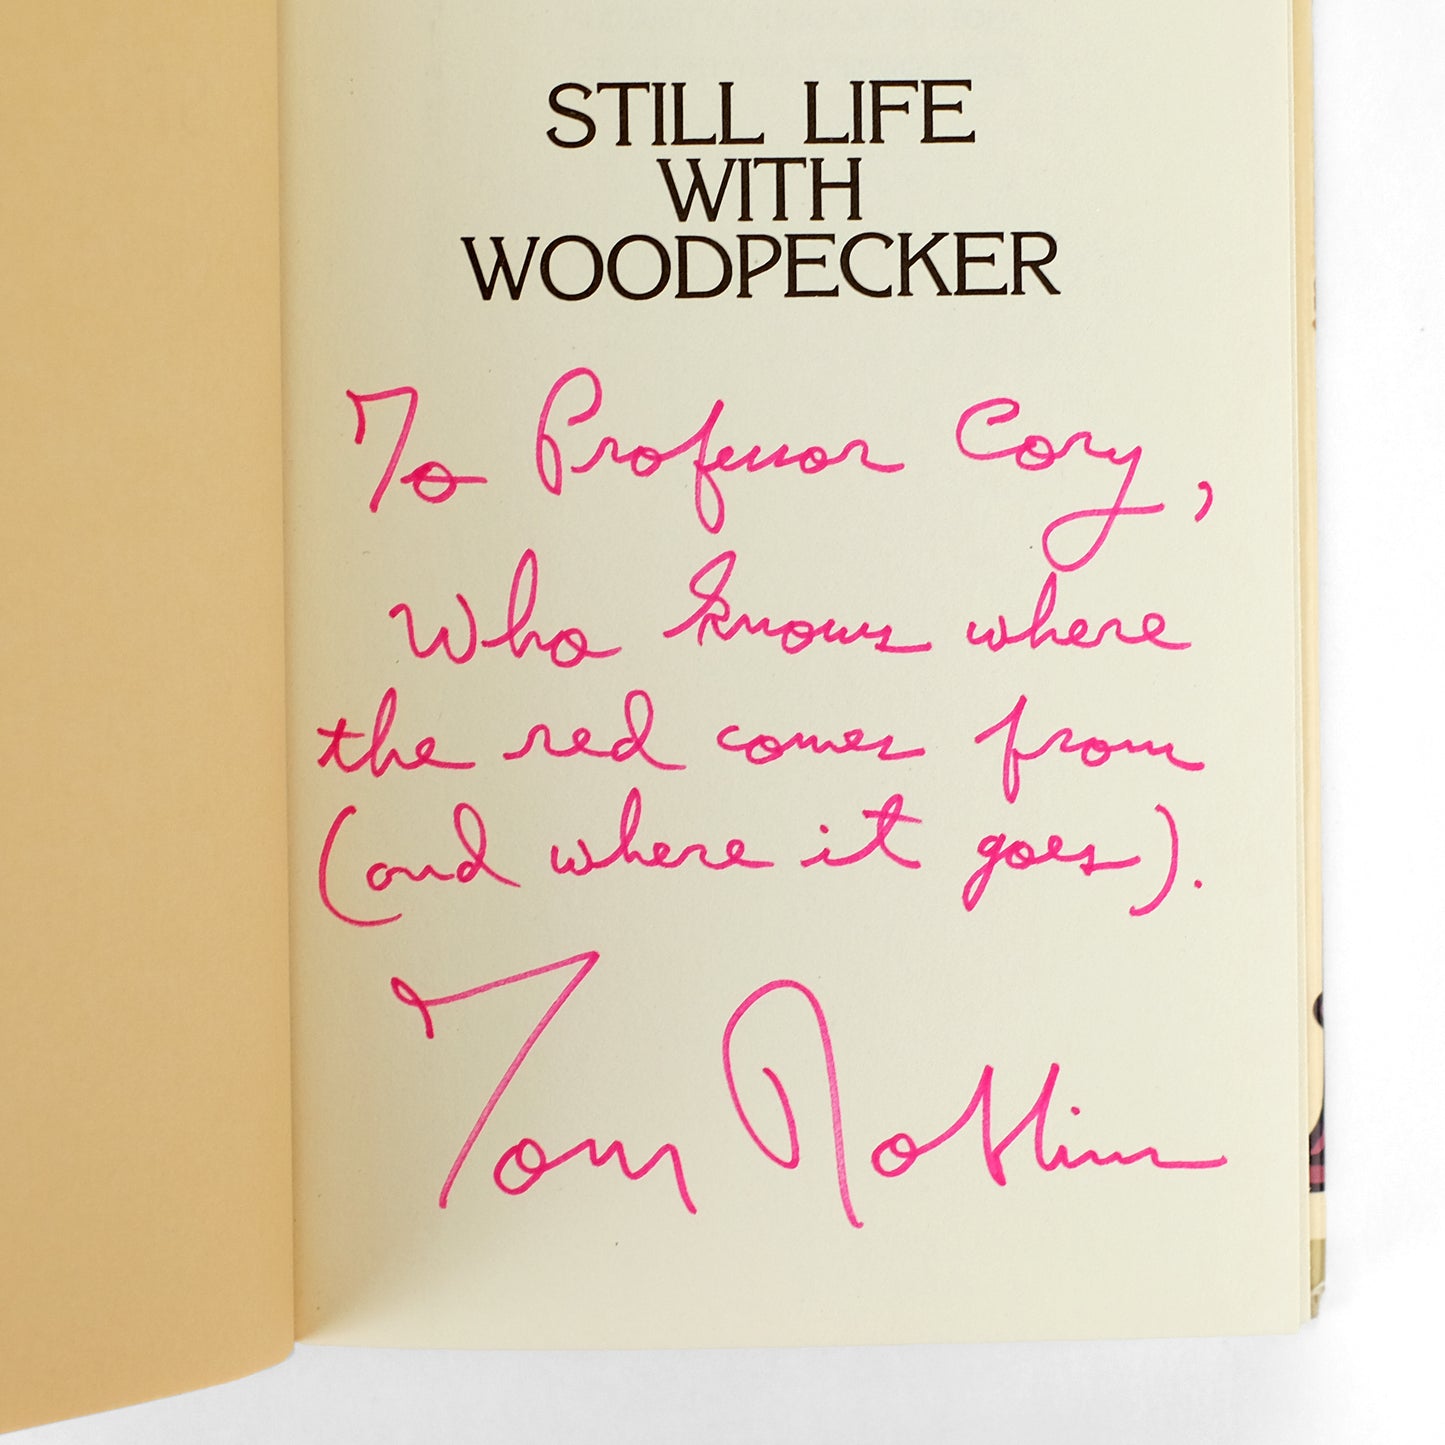 STILL LIFE
WITH
WOODPECKER
To Professor Cory,
Who knows where
the red comes from
(and where it goes).
Tom Robbins